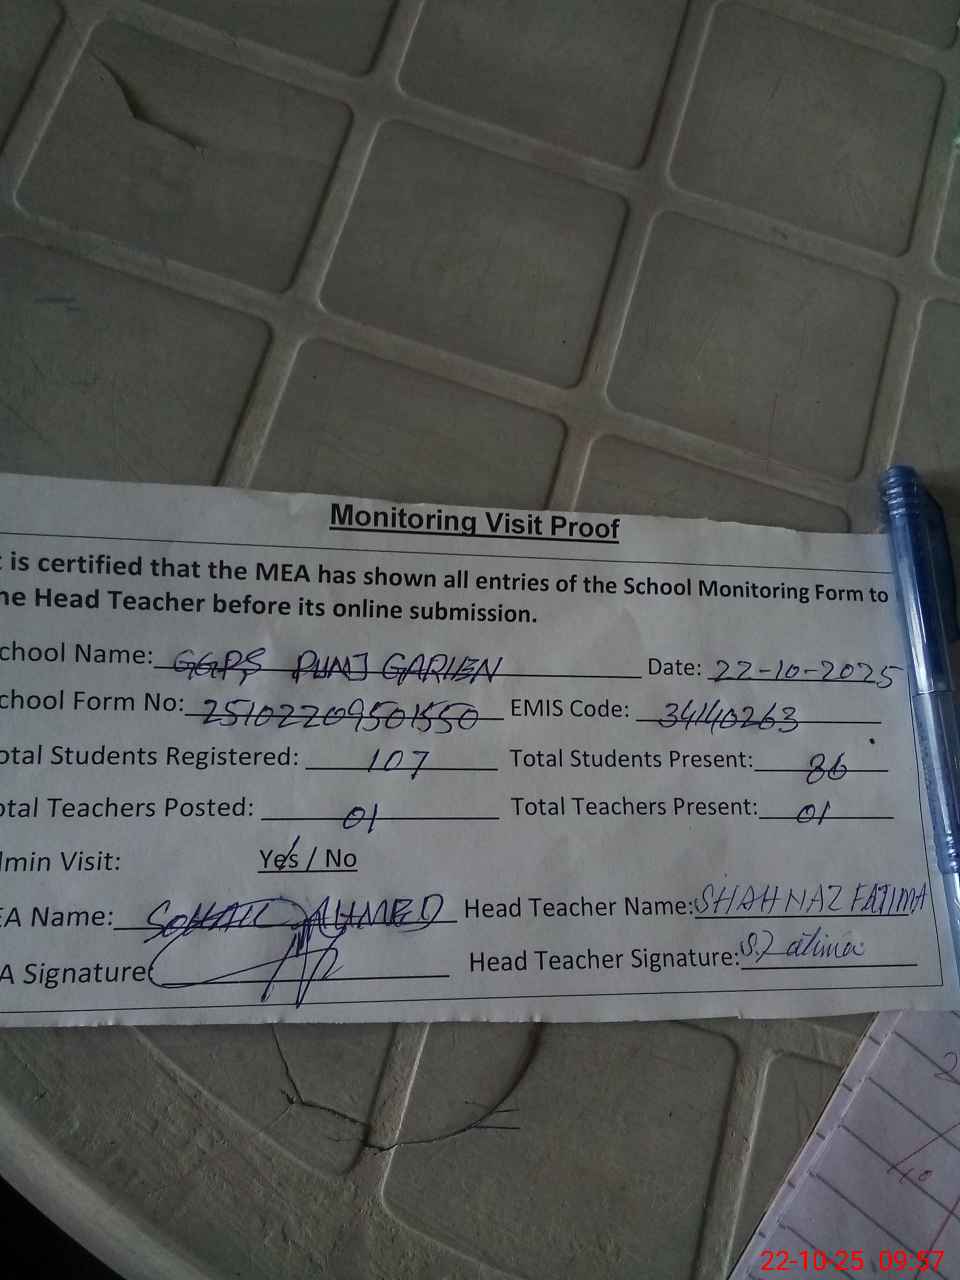 Monitoring Visit Proof
is certified that the MEA has shown all entries of the School Monitoring Form to
he Head Teacher before its online submission.
chool Name: GGPS PUNJ GARIEN Date: 22-10-2025
chool Form No: 25102209501550 EMIS Code: 34140263
otal Students Registered: 107 Total Students Present: 86
otal Teachers Posted: 01 Total Teachers Present: 01
dmin Visit: Yes / No
EA Name: SOHAIL AHMED Head Teacher Name: SHAHNAZ FATIMA
A Signature Head Teacher Signature: S.Fatima
40
22-10-25 09:57